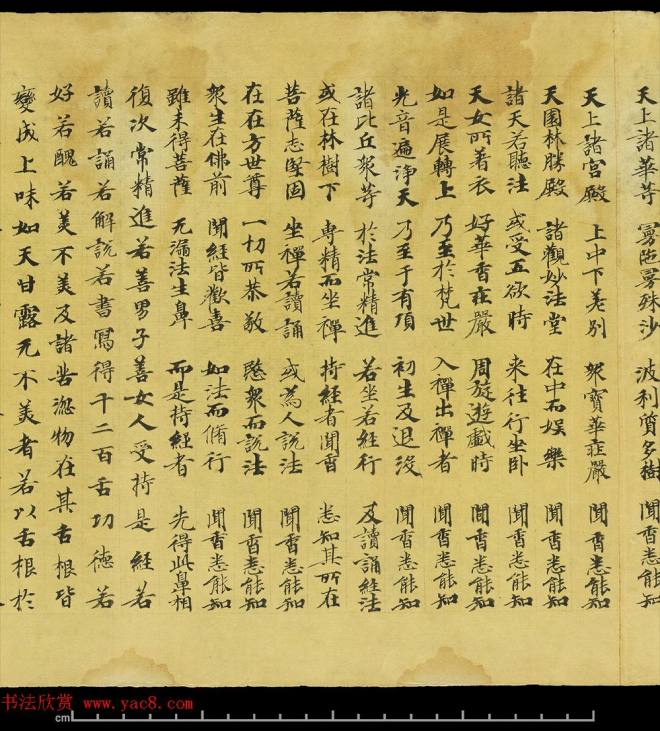 天上諸華等 曼陁曼殊沙 波利質多樹 聞香悉能知
天上諸宮殿 上中下差別 衆寶華莊嚴 聞香悉能知
天園林勝殿 諸觀妙法堂 在中而娛樂 聞香悉能知
諸天若聽法 或受五欲時 來往行坐卧 聞香悉能知
天女所著衣 好華香莊嚴 周旋遊戲時 聞香悉能知
如是展轉上 乃至於梵世 入禪出禪者 聞香悉能知
光音遍淨天 乃至于有頂 初生及退没 聞香悉能知
諸比丘衆等 於法常精進 若坐若經行 及讀誦經法
或在林樹下 專精而坐禪 持經者聞香 悉知其所在
菩薩志堅固 坐禪若讀誦 或為人說法 聞香悉能知
在在方世尊 一切所恭敬 愍衆而說法 聞香悉能知
衆生在佛前 聞經皆歡喜 如法而脩行 聞香悉能知
雖未得菩薩 无漏法生鼻 而是持經者 先得此鼻相
復次常精進若善男子善女人受持是經若
讀若誦若解說若書寫得千二百舌功德若
好若醜若美不美及諸苦澁物在其舌根皆
變成上味如天甘露无不美者若以舌根於
书法欣赏 www.yac8.com
cm